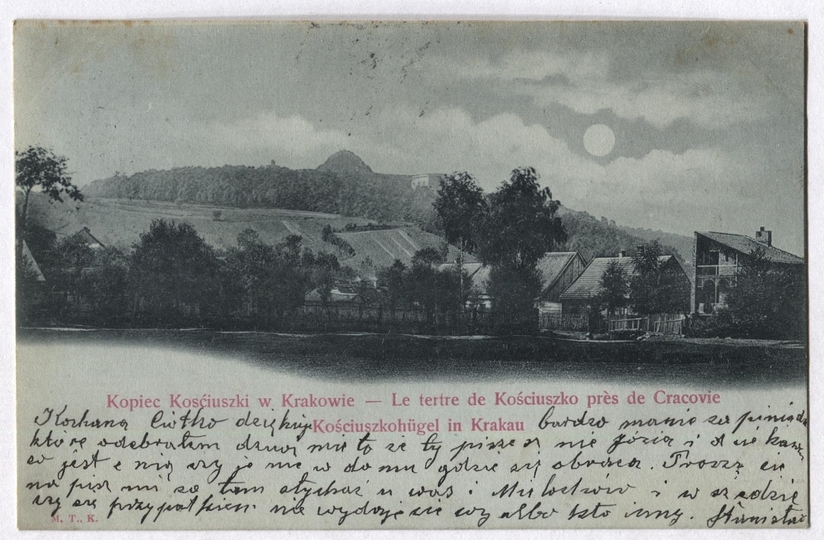 Kopiec Kosćiuszki w Krakowie — Le tertre de Kościuszko près de Cracovie
Kościuszkohügel in Krakau
Kochana Ciotko dziękuję bardzo mamie za pieniądz
które odebrałam to że ty piszesz nie
co jest z nią czy je me w domu gdzie się obraca. Proszę cię
na pisz mi co tam słychać u was i i wszędzie
czy się przypatkiem nie wydaje się czy albo kto inny. Stanisław
M. T., K.